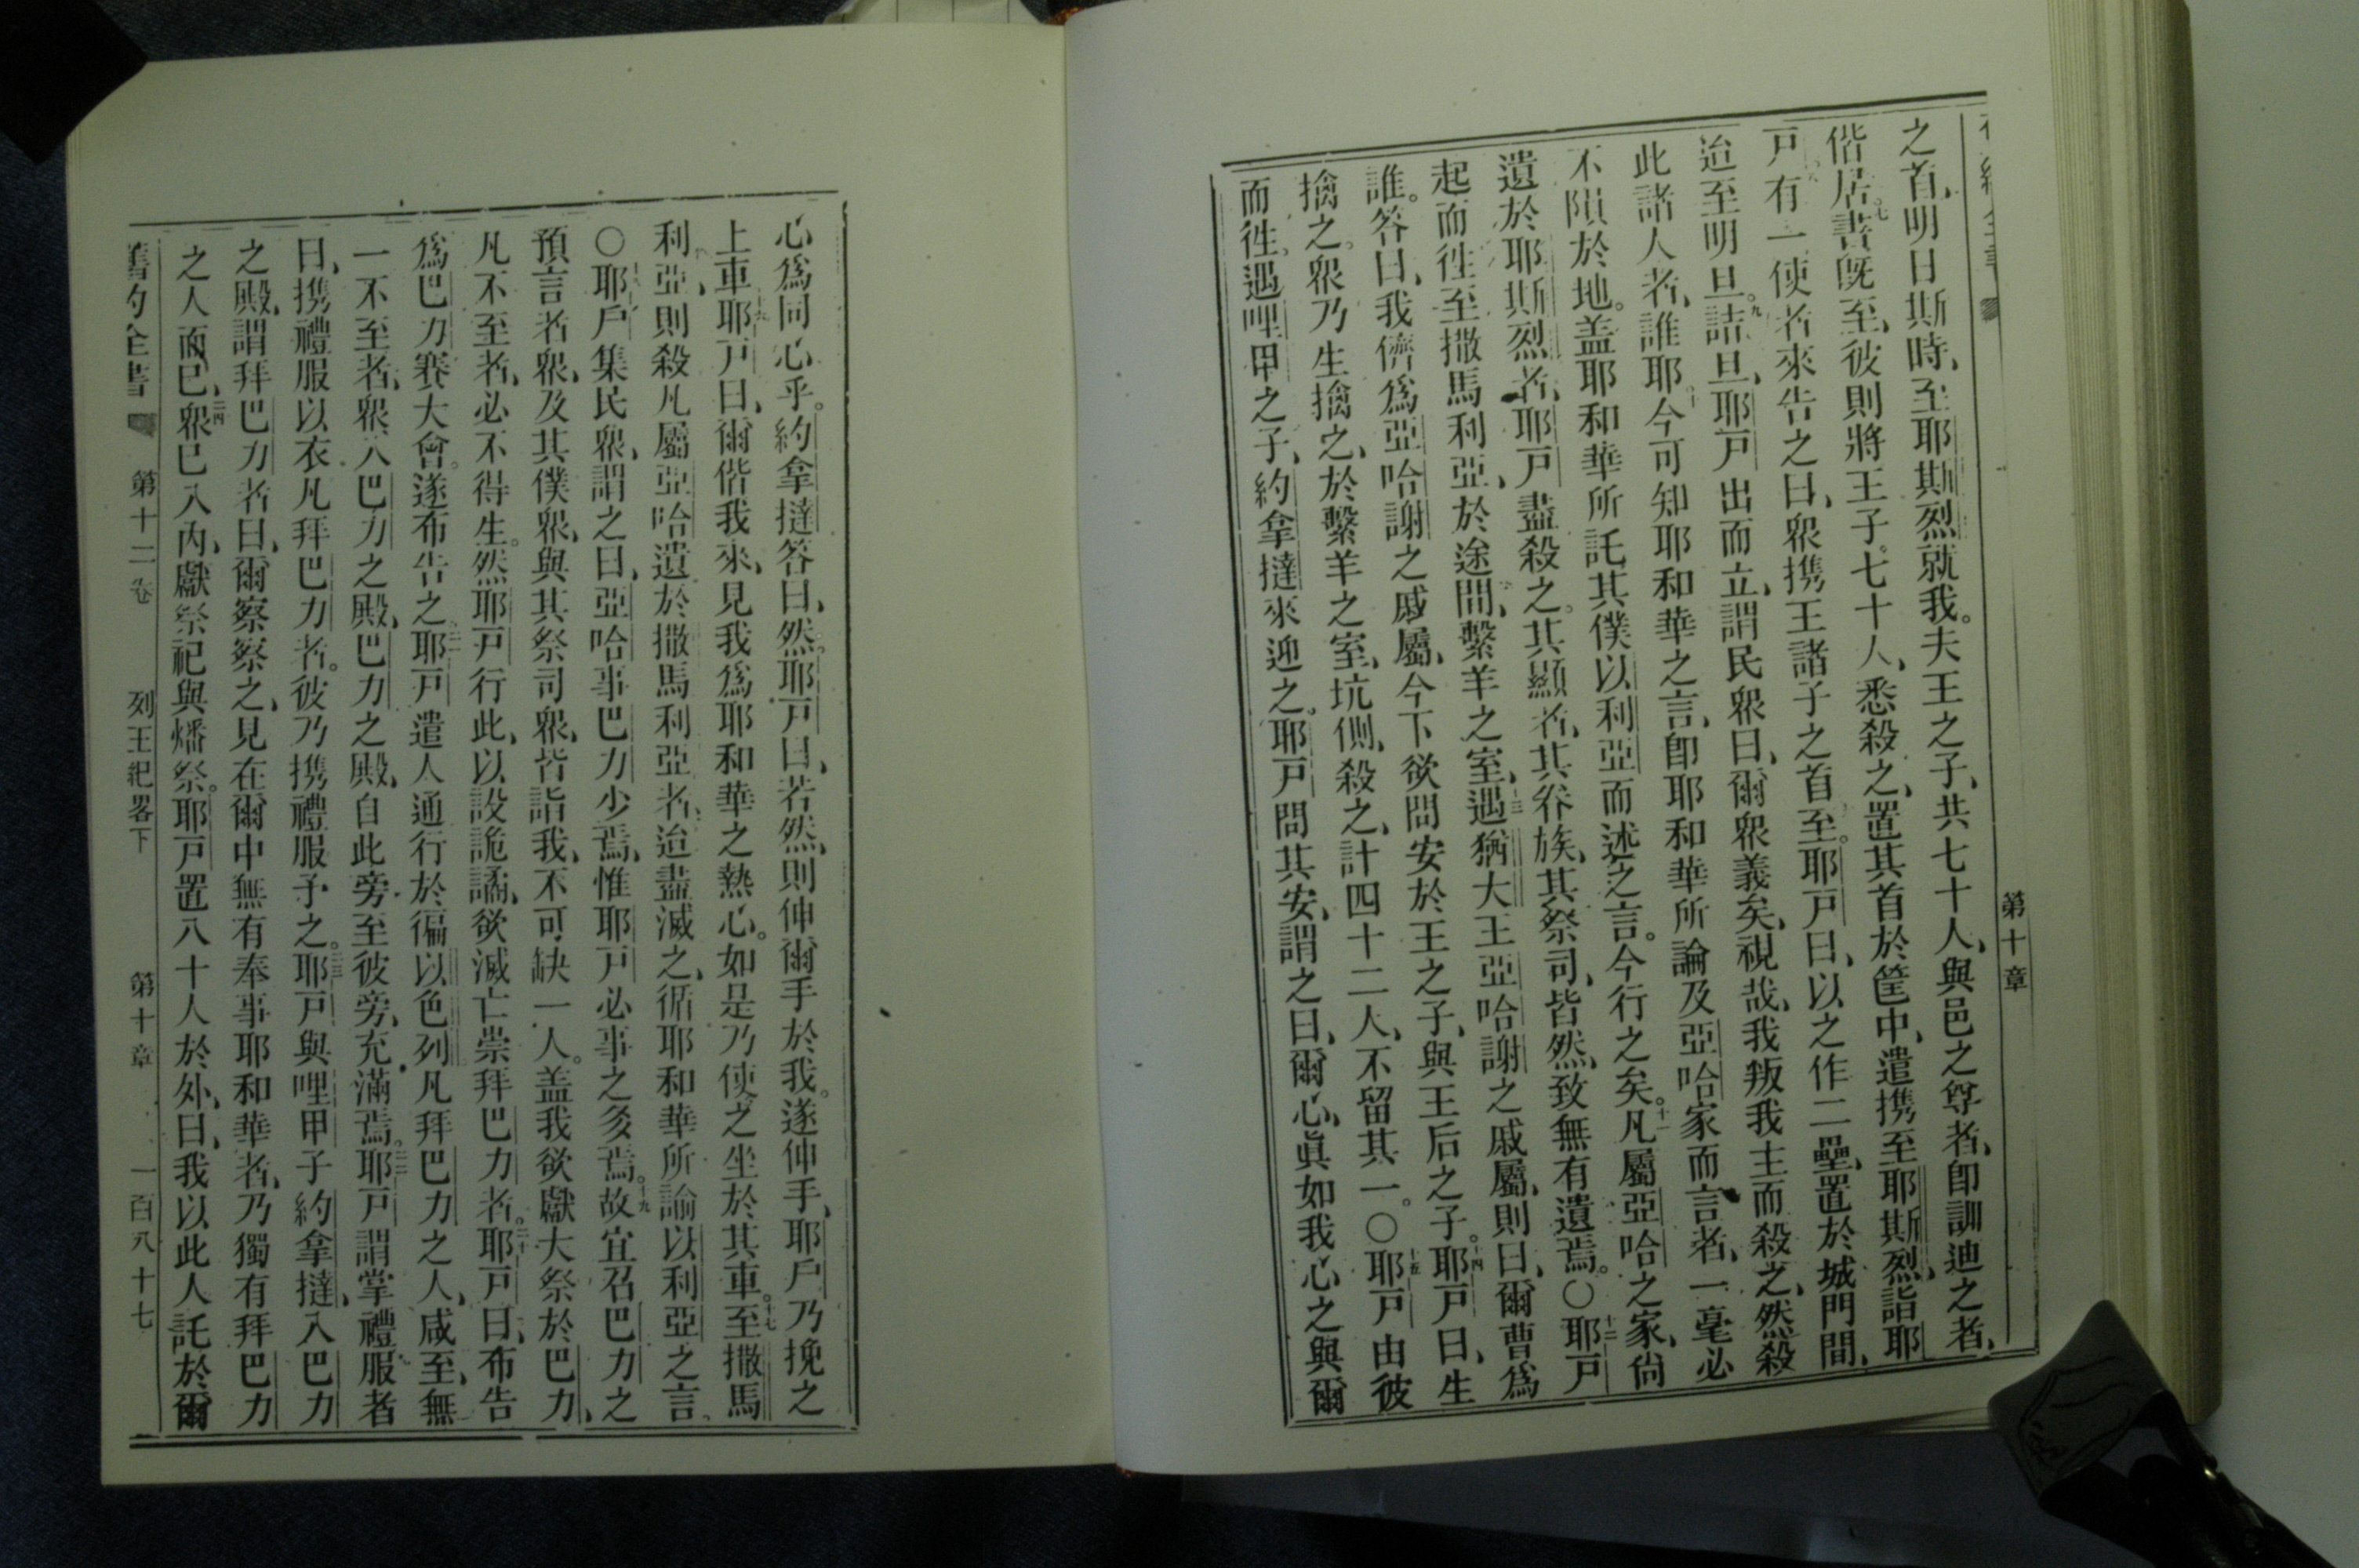 第十章
之首、明日斯時、至耶斯烈就我。夫王之子、共七十人、與邑之尊者、卽訓迪之者、
偕居。七書旣至、彼則將王子。七十人、悉殺之、置其首於筐中、遣携至耶斯烈、詣耶
戸。八有一使者來告之曰、衆携王諸子之首至。耶戸曰、以之作二壘、置於城門間、
迨至明旦。九詰旦、耶戸出而立、謂民衆曰、爾衆義矣、視哉、我叛我主而殺之、然殺
此諸人者、誰耶。十今可知耶和華之言、卽耶和華所論及亞哈家而言者、一毫必
不隕於地。盖耶和華所託其僕以利亞而述之言。今行之矣。十一凡屬亞哈之家、尙
遺於耶斯烈者、耶戸盡殺之。其顯者、其眷族、其祭司、皆然、致無有遺焉。〇十二耶戸
起而徃至撒馬利亞、於途間、繫羊之室、十三遇猶大王亞哈謝之戚屬、則曰、爾曹爲
誰。答曰、我儕爲亞哈謝之戚屬、今下欲問安於王之子、與王后之子。十四耶戸曰、生
擒之。衆乃生擒之、於繫羊之室、坑側、殺之、計四十二人、不留其一。〇十五耶戸由彼
而徃。遇哩甲之子、約拿撻來迎之。耶戸問其安、謂之曰、爾心、眞如我心之與爾
心爲同心乎。約拿撻答曰、然。耶戸曰、若然、則伸爾手於我。遂伸手、耶戶乃挽之
上車、十六耶戸曰、爾偕我來、見我爲耶和華之熱心。如是乃使之坐於其車。十七至撒馬
利亞、則殺凡屬亞哈遺於撒馬利亞者、迨盡滅之、循耶和華所諭以利亞之言、
〇十八耶戶集民衆、謂之曰、亞哈事巴力少焉、惟耶戸必事之多焉。十九故宜召巴力之
預言者衆、及其僕衆、與其祭司衆、皆詣我、不可缺一人。盖我欲獻大祭於巴力、
凡不至者、必不得生。然耶戸行此、以設詭譎、欲滅亡崇拜巴力者。二十耶戸曰、布告
爲巴力賽大會。遂布告之、二一耶戸遣人通行於徧以色列凡拜巴力之人、咸至、無
一不至者、衆入巴力之殿、巴力之殿、自此旁至彼旁、充滿焉。二二耶戸謂掌禮服者
曰、携禮服以衣凡拜巴力者。彼乃携禮服予之。二三耶戸與哩甲子約拿撻、入巴力
之殿、謂拜巴力者曰、爾察察之、見在爾中無有奉事耶和華者、乃獨有拜巴力
之人而已、二四衆已入內、獻祭祀與燔祭。耶戸置八十人於外、曰、我以此人託於爾
舊約全書 第十二卷 列王紀畧下 第十章 一百八十七